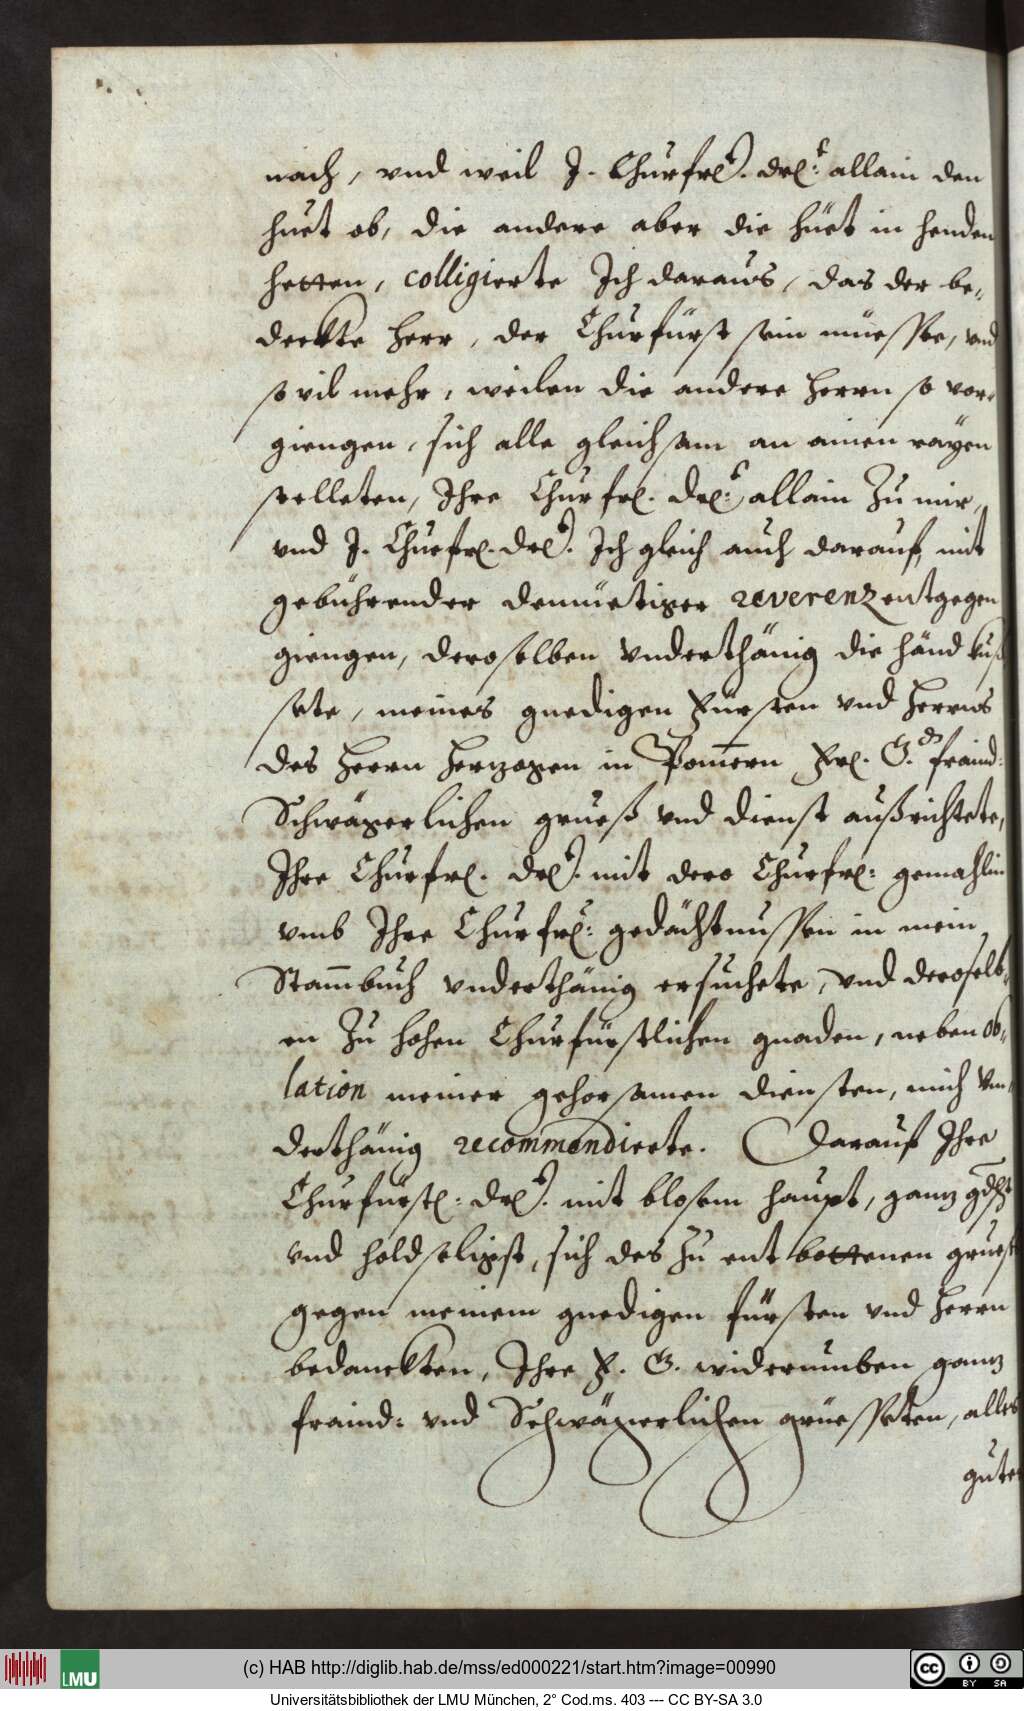 nach, vnd weil J. Churfrl. drl: allain den
huet ob, die andere aber die hüet in henden
hetten, colligierte Ich daraus, das der be-
deckte herr, der Churfürst sein müesste, vnd
so vil mehr, weilen die andere herrn so vor-
giengen, sich alle gleichsam an ainen rayen
stelleten, Ihre Churfrl. drl: allain zu mir,
vnd J. Churfrl. drl. Ich gleich auch darauf, mit
gebührender demüetiger reverenz entgegen
giengen, deroselben vnderthänig die händ kuß
sete, meines gnedigen Fürsten vnd herrns
des herrn hertzogen in Pom̄ern Frl. G.dn fraind:
Schwägerlichen grueß vnd dienst außrichtete,
Ihre Churfrl. drl. mit dero Churfrl: gemahlin
vmb Ihre Churfrl: gedächtnussen in mein
Stam̄buch vnderthänig ersuchete, vnd deroselb-
en zu hohen Churfürstlichen gnaden, neben ob-
lation meiner gehorsamen diensten, mich vn-
derthänig recommendierte. Darauf Ihre
Churfürstl: drl. mit blosem haupt, gantz gdst
vnd holdseligst, sich des zu entbottenen gruess
gegen meinem gnedigen fürsten vnd herrn
bedanckten, Ihre F. G. widerumben gantz
fraind: vnd Schwägerlichen grüesseten, alles
gutes
(c) HAB http://diglib.hab.de/mss/ed000221/start.htm?image=00990
LMU
cc BY SA
Universitätsbibliothek der LMU München, 2° Cod.ms. 403 --- CC BY-SA 3.0